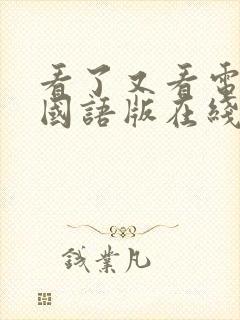 看了又看電
國語版在綫
钱業凡